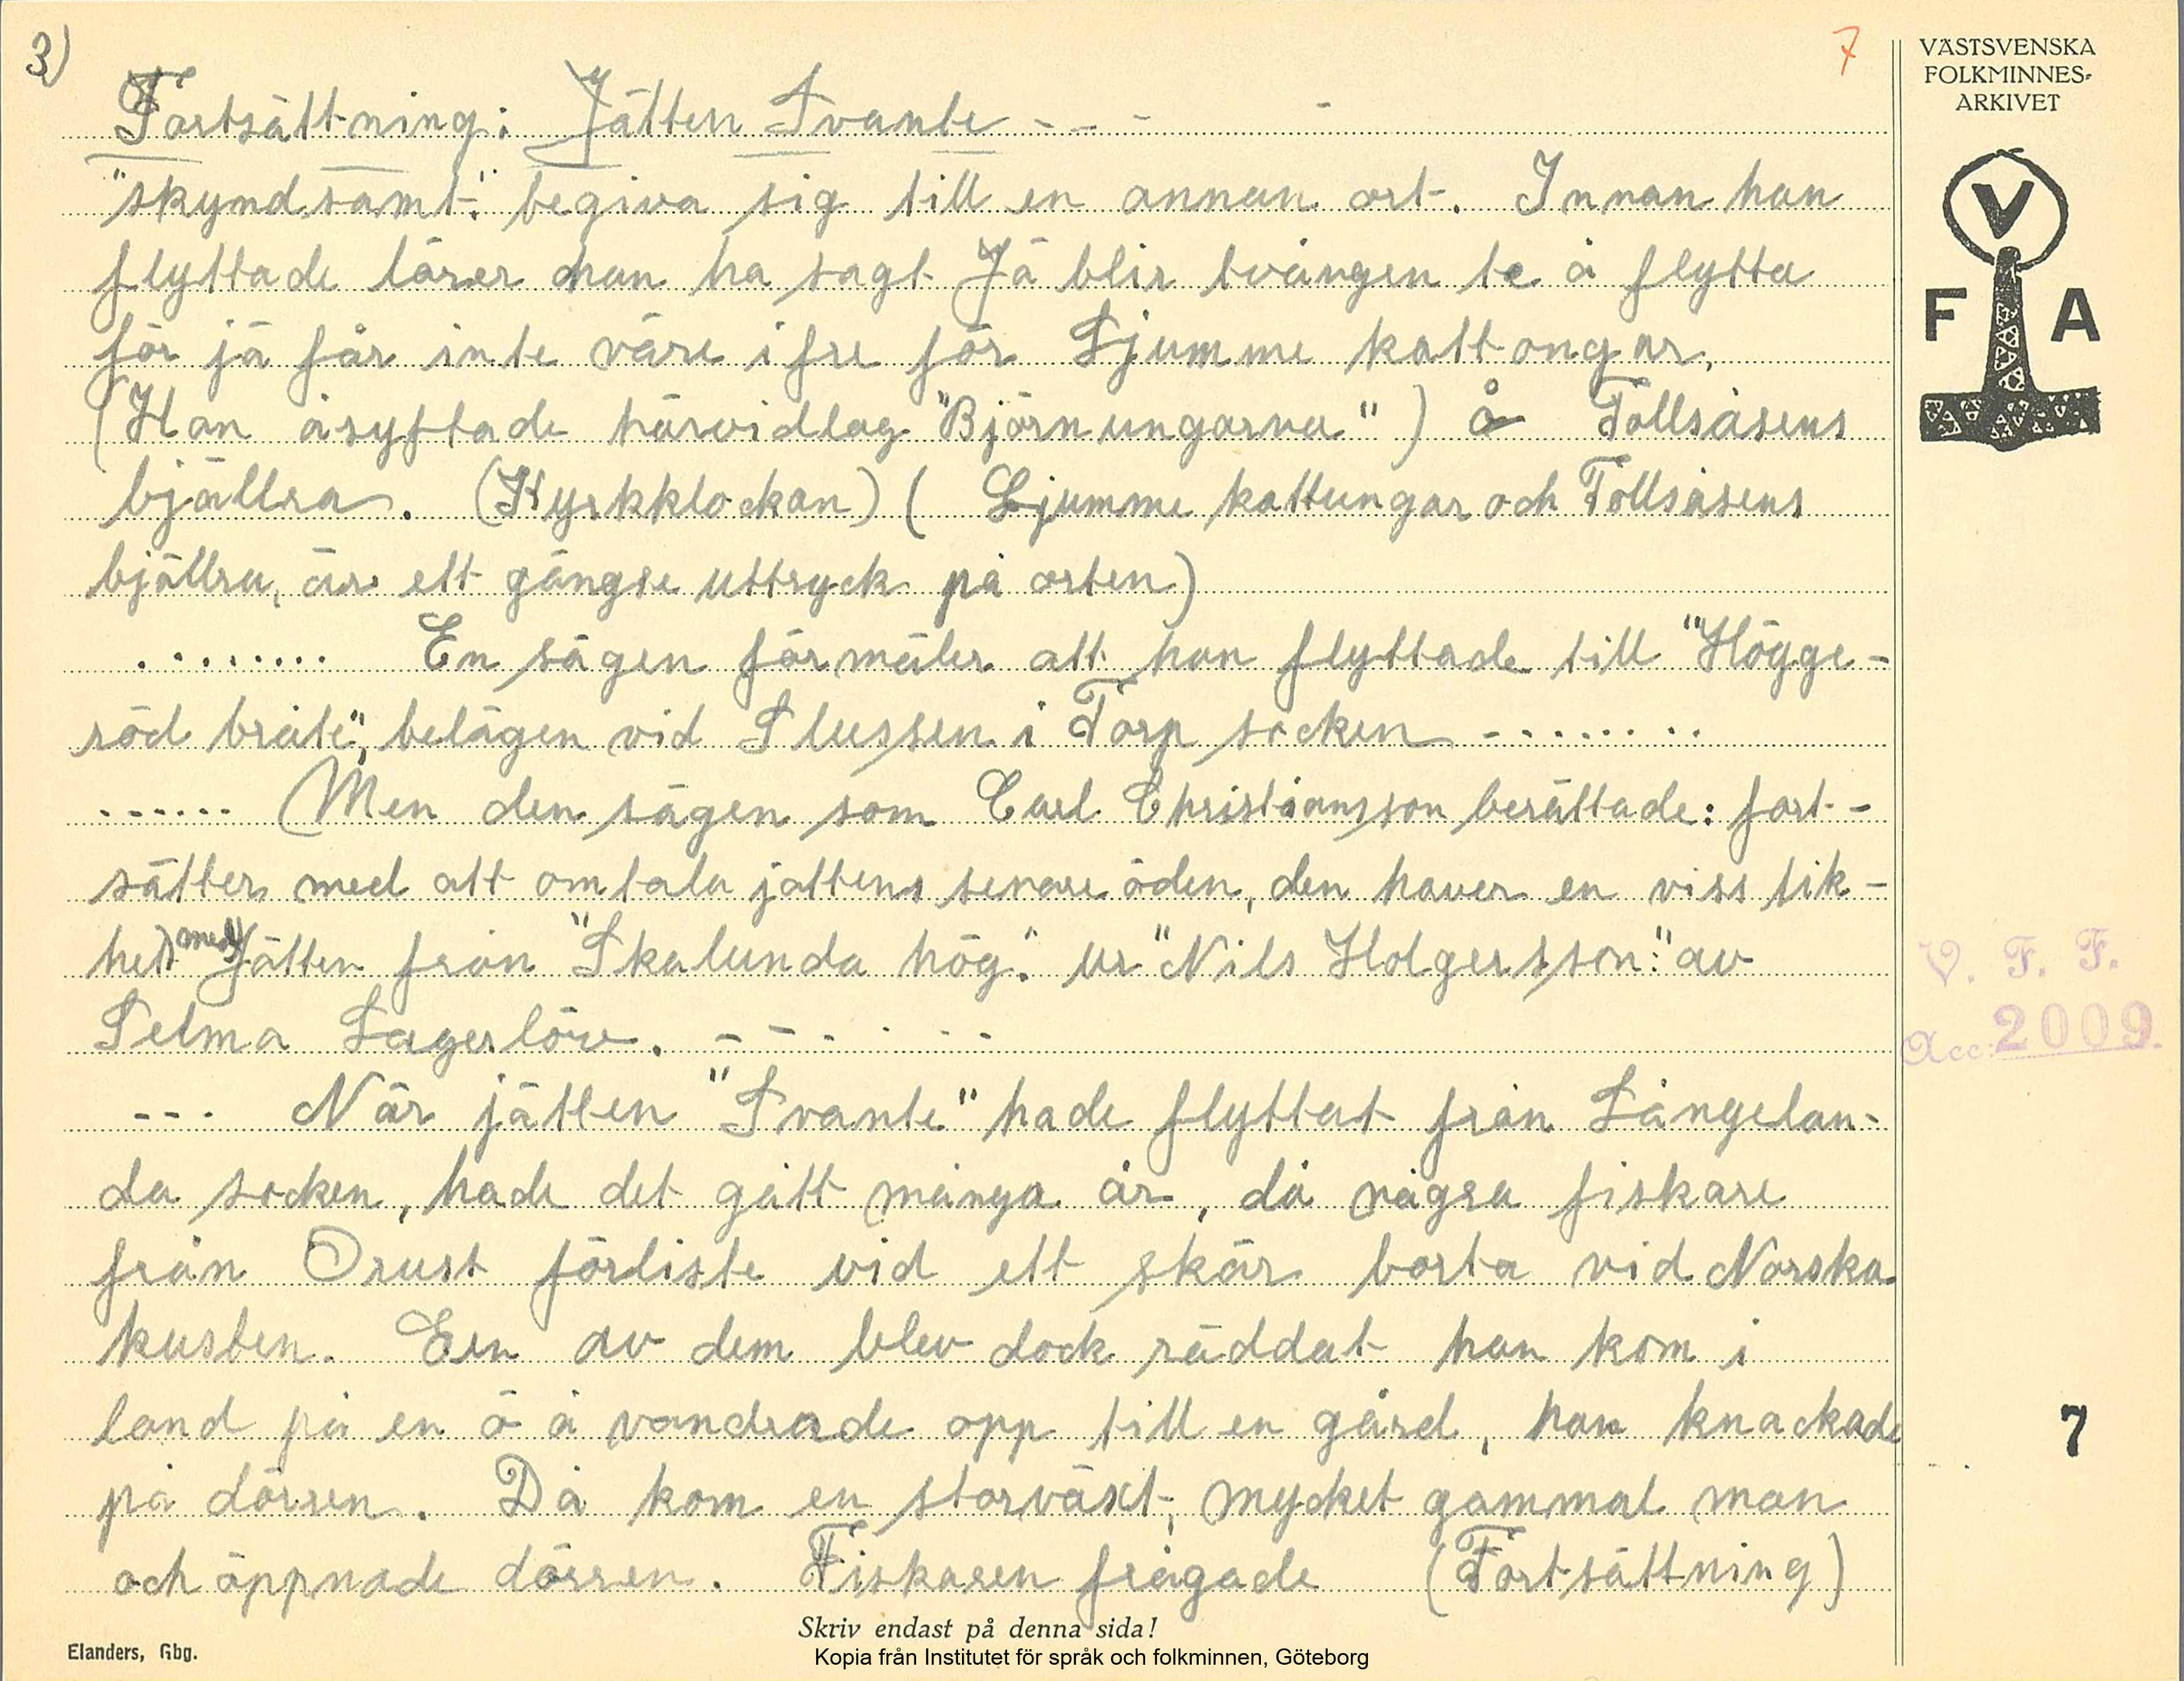 3)
7
Fortsättning: Jätten Svante - - -
"skyndsamt". begiva sig till en annan ort. Innan han
flyttade lärer han ha sagt Jä blir tvången te å flytta
för jä får inte väre i fre för Ljumme kattongar,
(Han åsyftade härvidlag "Björnungarna") å Tollsåsens
bjällra. (Kyrkklockan) ( Ljumme kattungar och Tollsåsens
bjällra, är ett gängse uttryck på orten)
......... En sägen förmäler att han flyttade till "Högge-
röd bråte", belägen vid Slussen i Torp socken - . . . . . . . .
...... (Men den sägen som Carl Christiansson berättade: fort-
sätter med att omtala jättens senare öden, den haver en viss lik-
het) med Jätten från "Skalunda hög". ur "Nils Holgersson". av
Selma Lagerlöw. - - - . - -
--- När jätten "Svante" hade flyttat från Långelan-
da socken, hade det gått många år, då några fiskare
från Orust förliste vid ett skär borta vid Norska
kusten. Een av dem blev dock räddat han kom i
land på en ö å vandrade opp till en gård, han knackade
på dörren. Då kom en storväxt, mycket gammal man
och öppnade dörren. Fiskaren frågade (Fortsättning)
Skriv endast på denna sida!
Elanders, Gbg.
Kopia från Institutet för språk och folkminnen, Göteborg
VÄSTSVENSKA
FOLKMINNES-
ARKIVET
V
F A
V. F. F.
Acc. 2009.
7